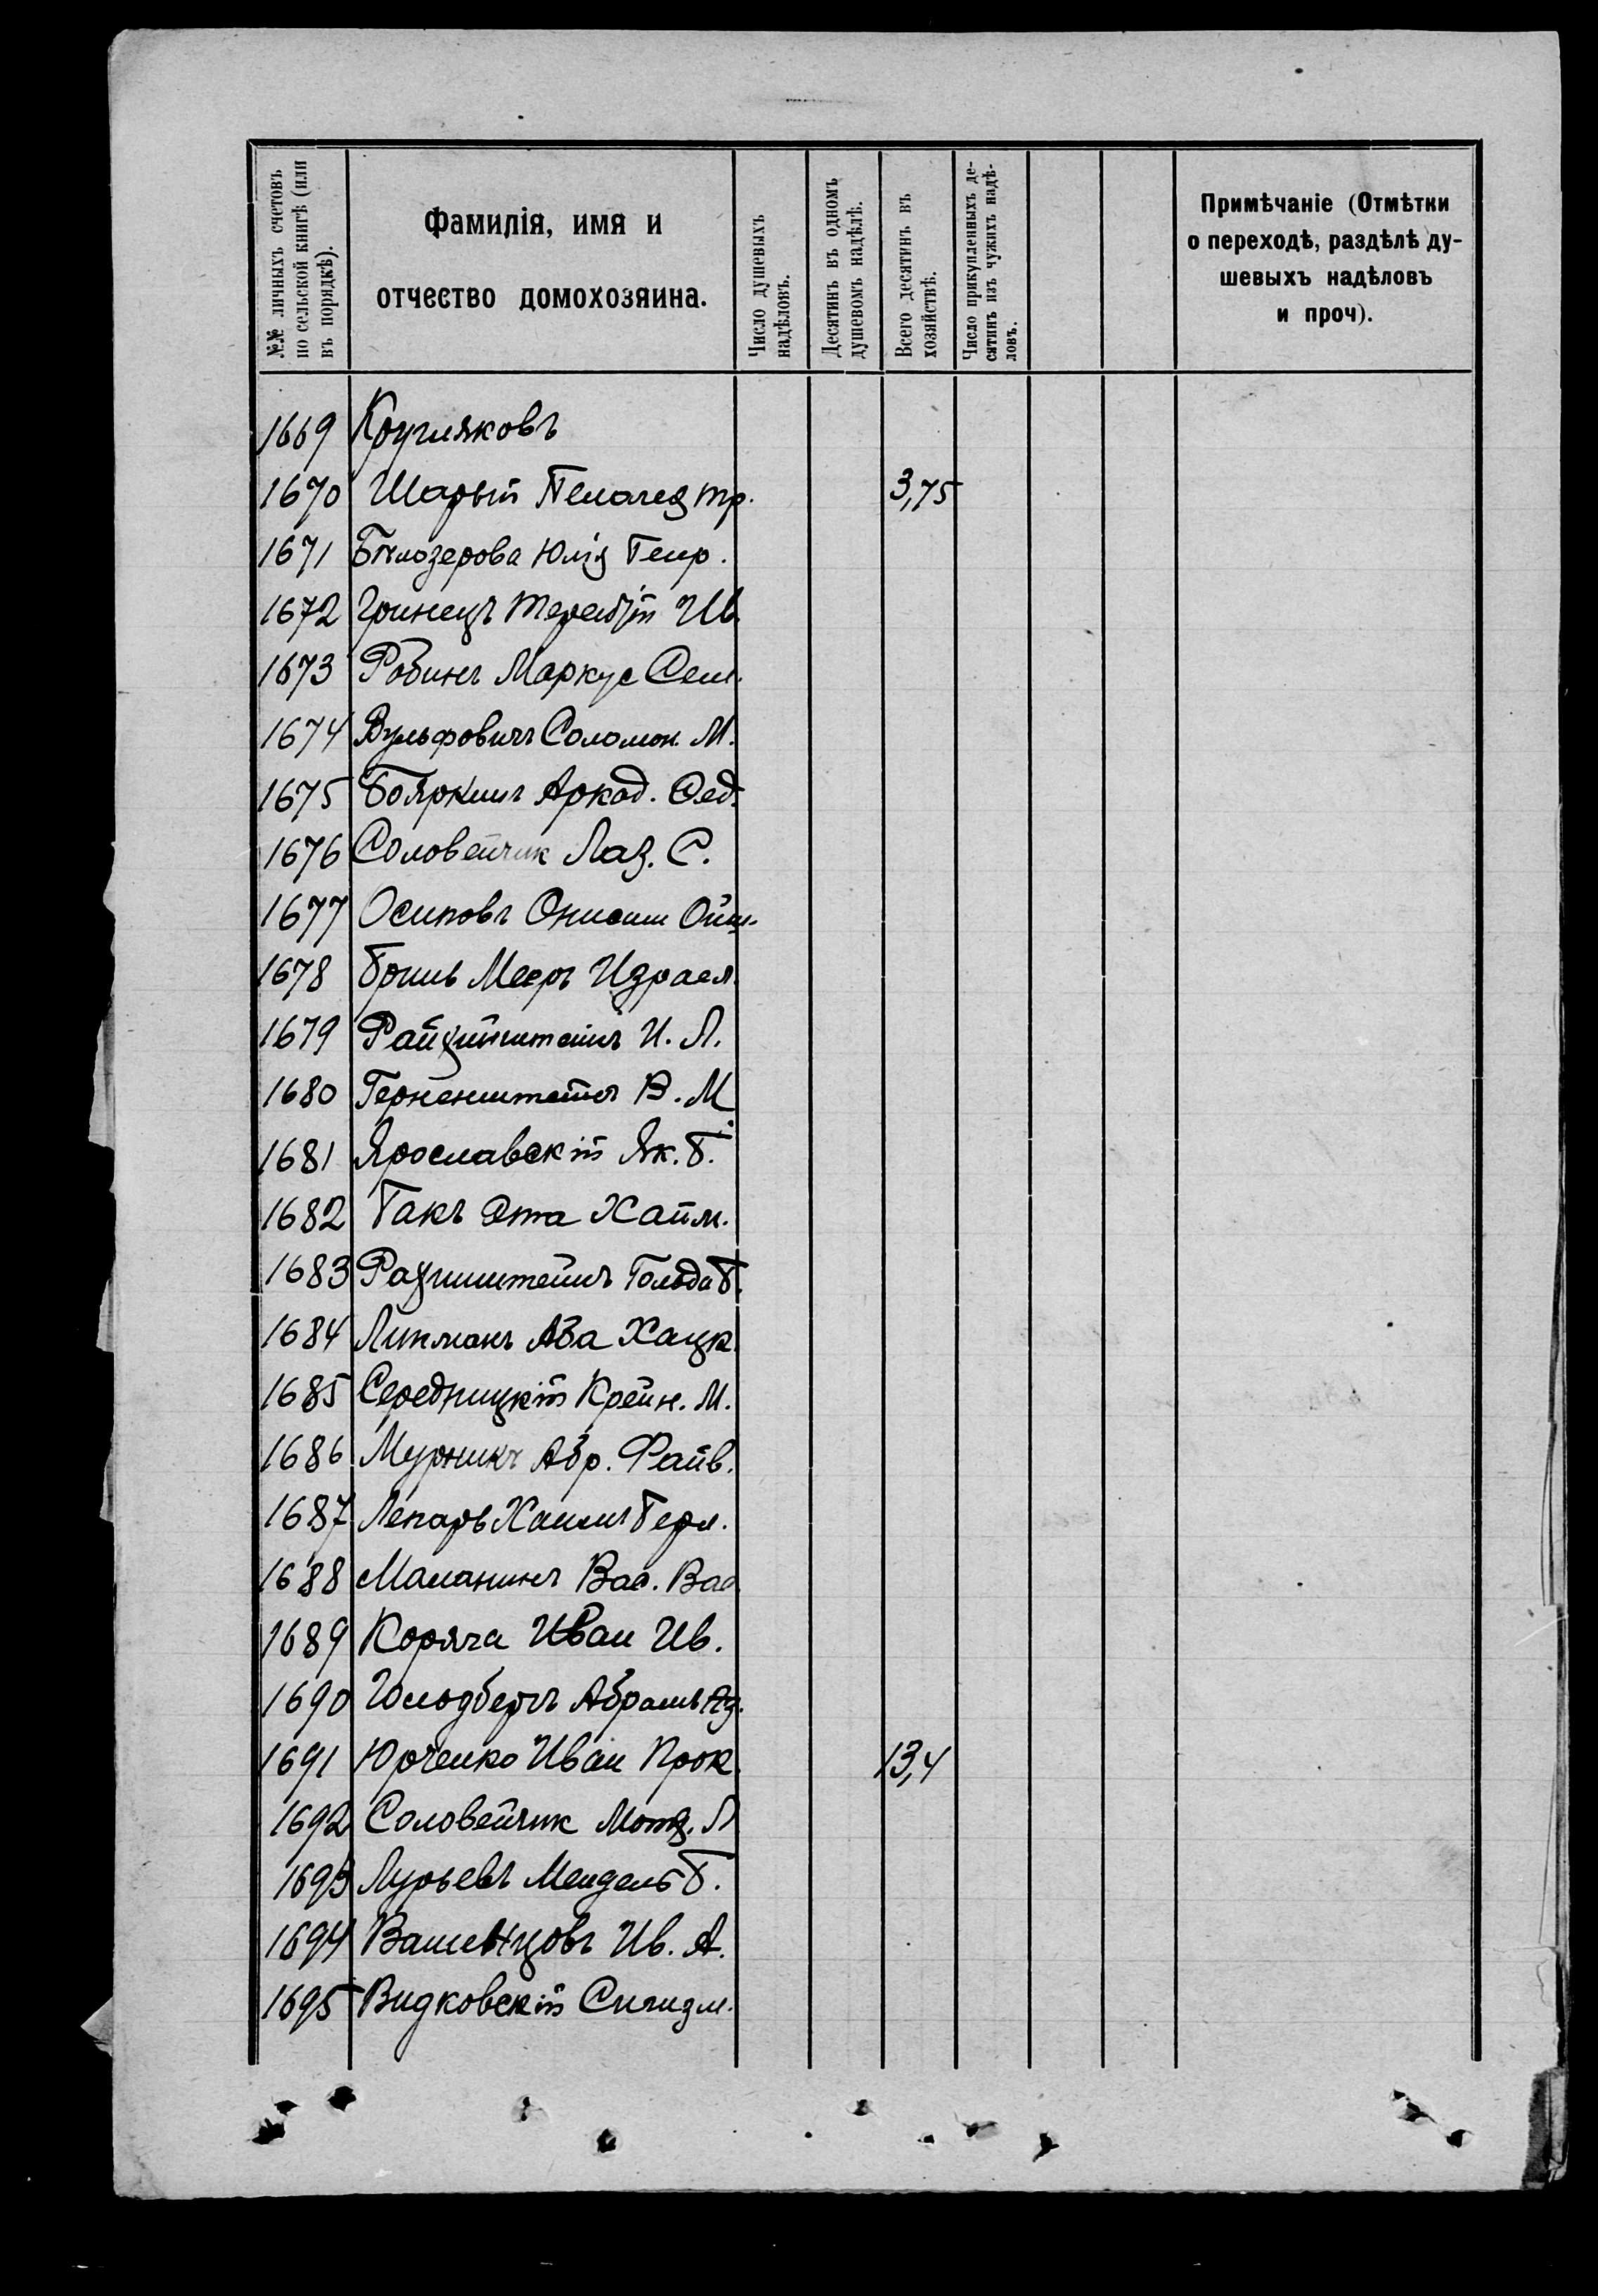 №№ личныхъ счетовъ по сельской книгѣ (или въ порядкѣ).
Фамилія, имя и отчество домохозяина.
Число душевыхъ надѣловъ.
Десятинъ въ одномъ душевомъ надѣлѣ.
Всего десятинъ въ хозяйствѣ.
Число прикупленныхъ десятинъ изъ чужихъ надѣловъ.
Примѣчаніе (Отмѣтки
о переходѣ, раздѣлѣ ду-
шевыхъ надѣловъ
и проч).
1669 Кругляковъ
1670 Шарый Пелагея Тр. 3,75
1671 Бѣлозерова Юлія
1672 Гринецъ Терентій Ив.
1673 Робинъ Маркус Сем.
1674 Вульфовичъ Соломон. М.
1675 Бояркинъ Аркад.
1676 Соловейчик Лаз. С.
1677 Осиповъ Онисим
1678 Бриль Мееръ Израел.
1679 И. Л.
1680 В. М.
1681 Ярославскій Як. Б.
1682 Гакъ Эта Хаим.
1683 Голода Б.
1684 Липманъ Аба Хацк.
1685 Середницкій Крейн. М.
1686 Мурникъ Абр. Файв.
1687 Лекарь Хаим
1688 Маланинъ Вас. Вас.
1689 Коряга Иван Ив.
1690 Гольдбергъ Абрамъ
1691 Юрченко Иван Прок. 13,4
1692 Соловейчик Л.
1693 Лурьевъ Мендель Б.
1694 Ив. А.
1695 Видковскій Сигизм.